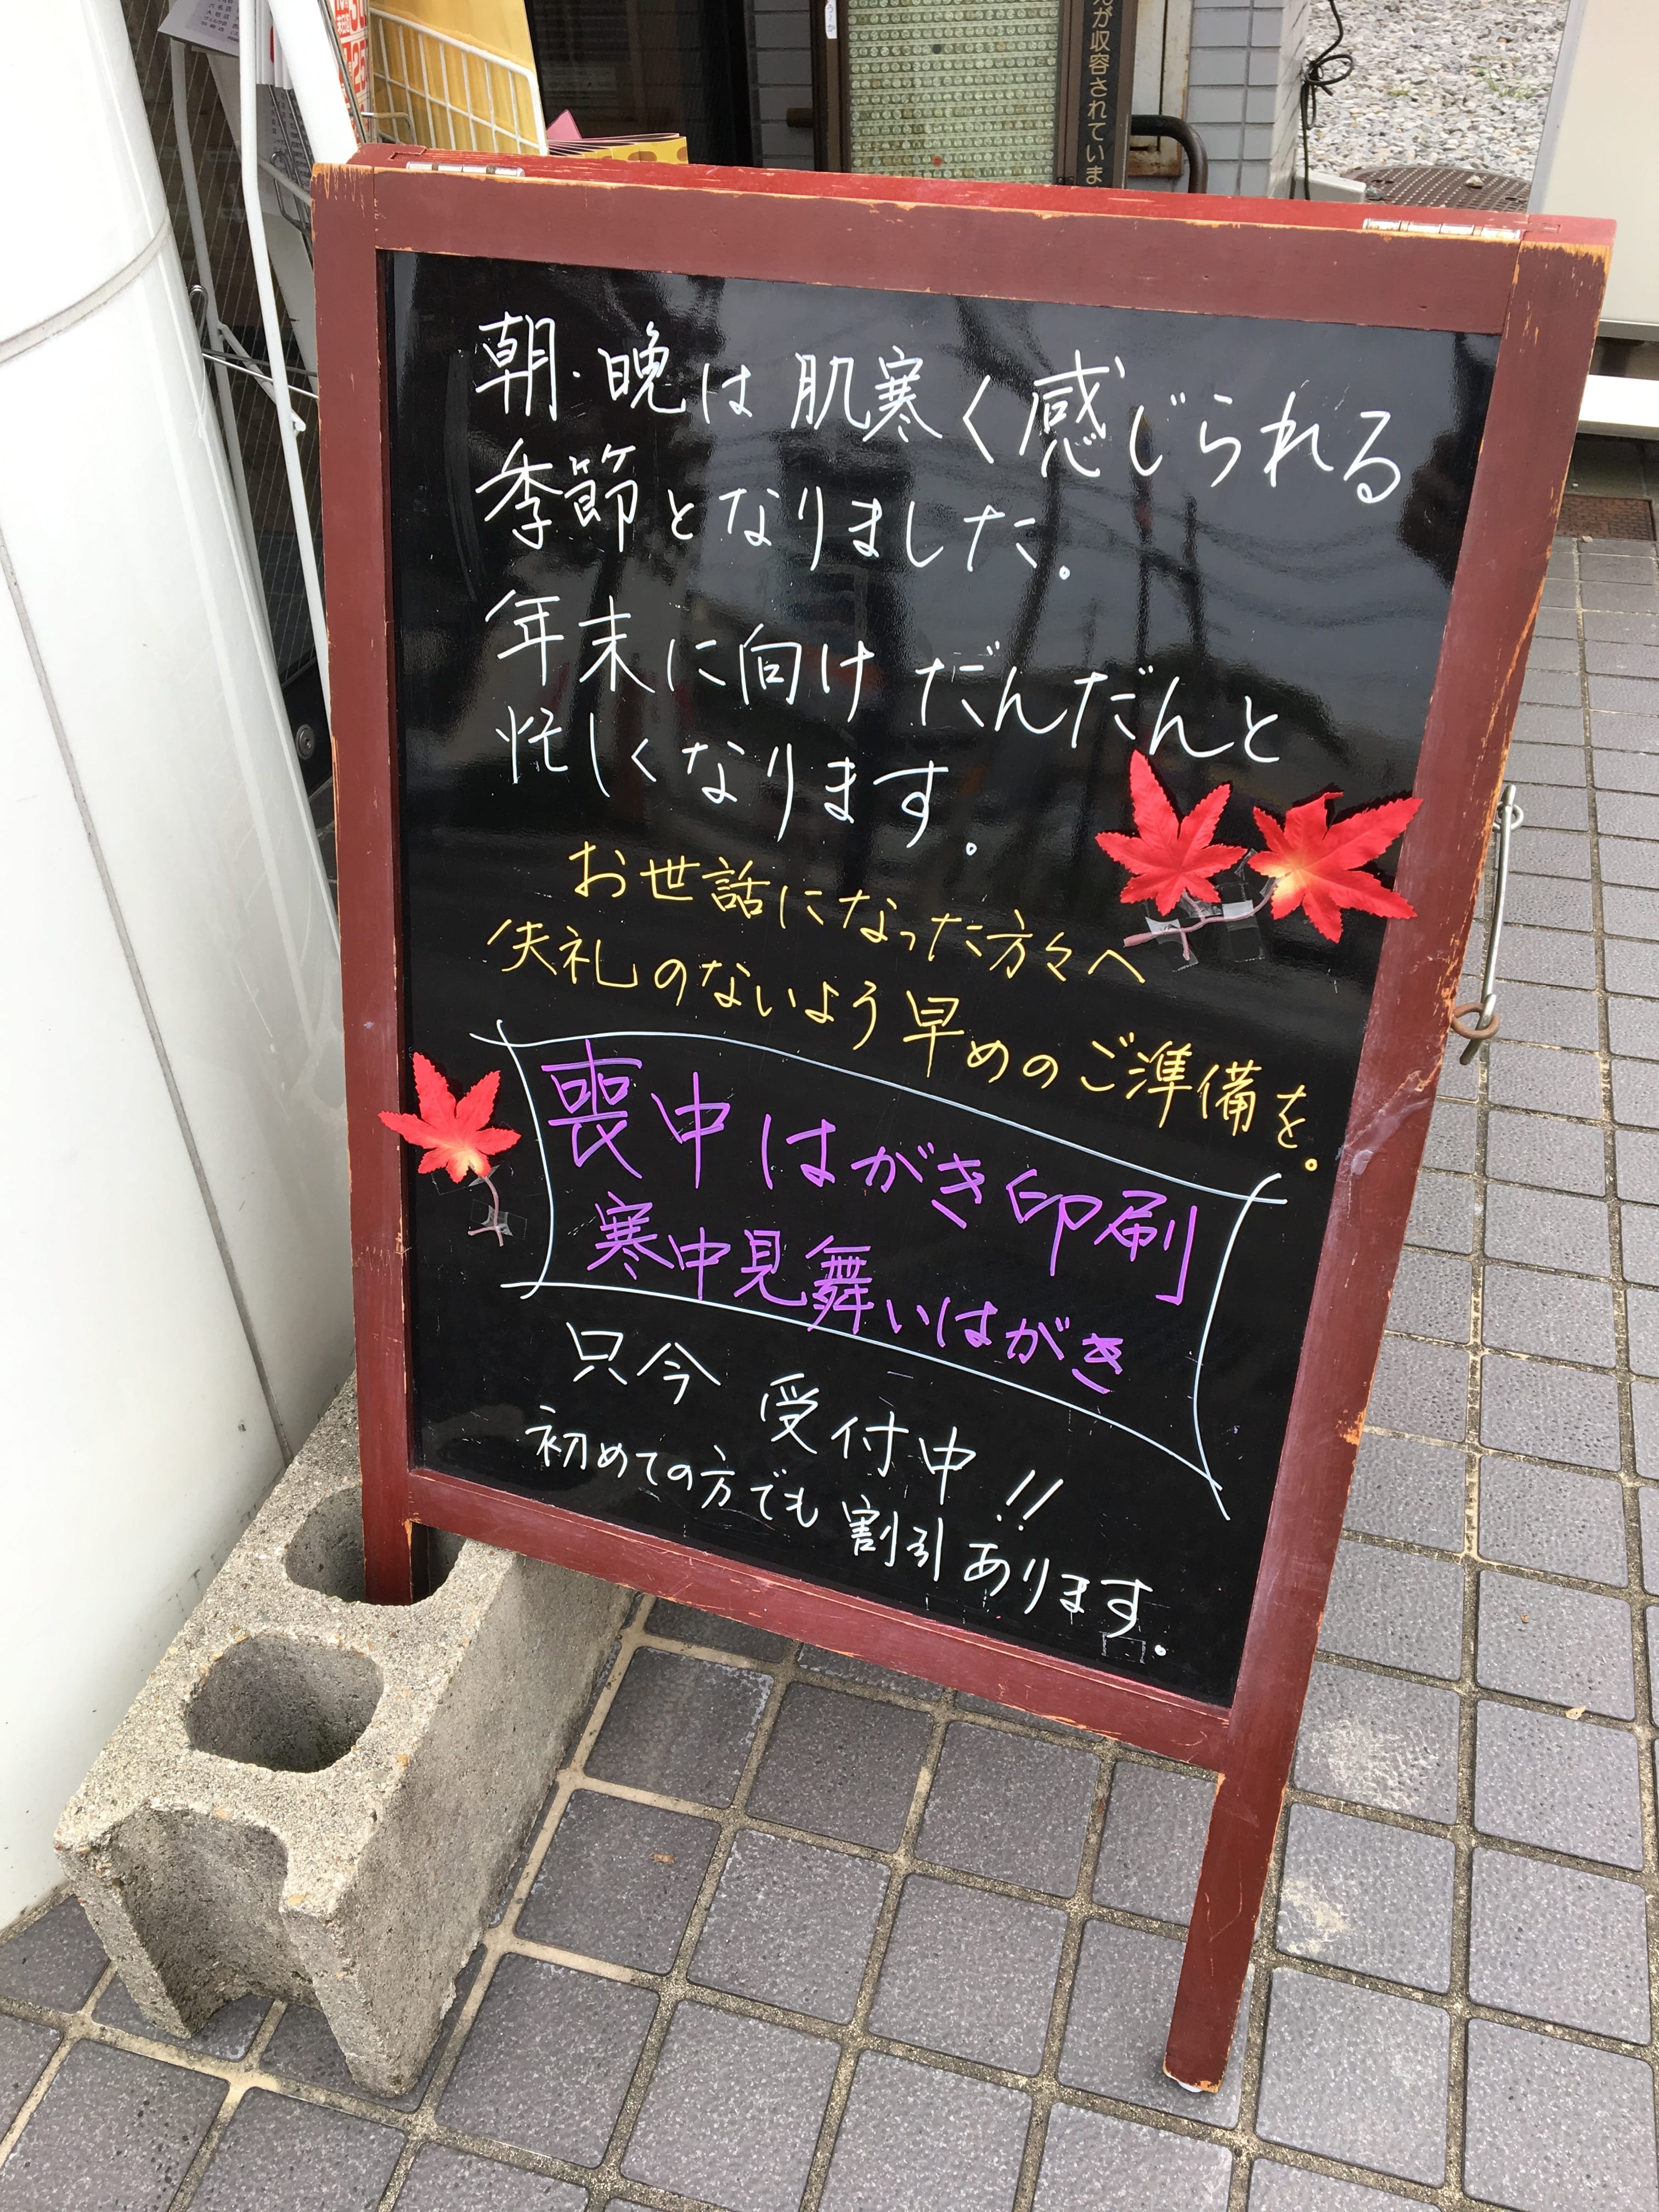 んが収容されていま
朝・晩は肌寒く感じられる
季節となりました。
年末に向けだんだんと
忙しくなります。
お世話になった方々へ
失礼のないよう早めのご準備を。
喪中はがき印刷
寒中見舞いはがき
只今 受付中!!
初めての方でも割引あります。